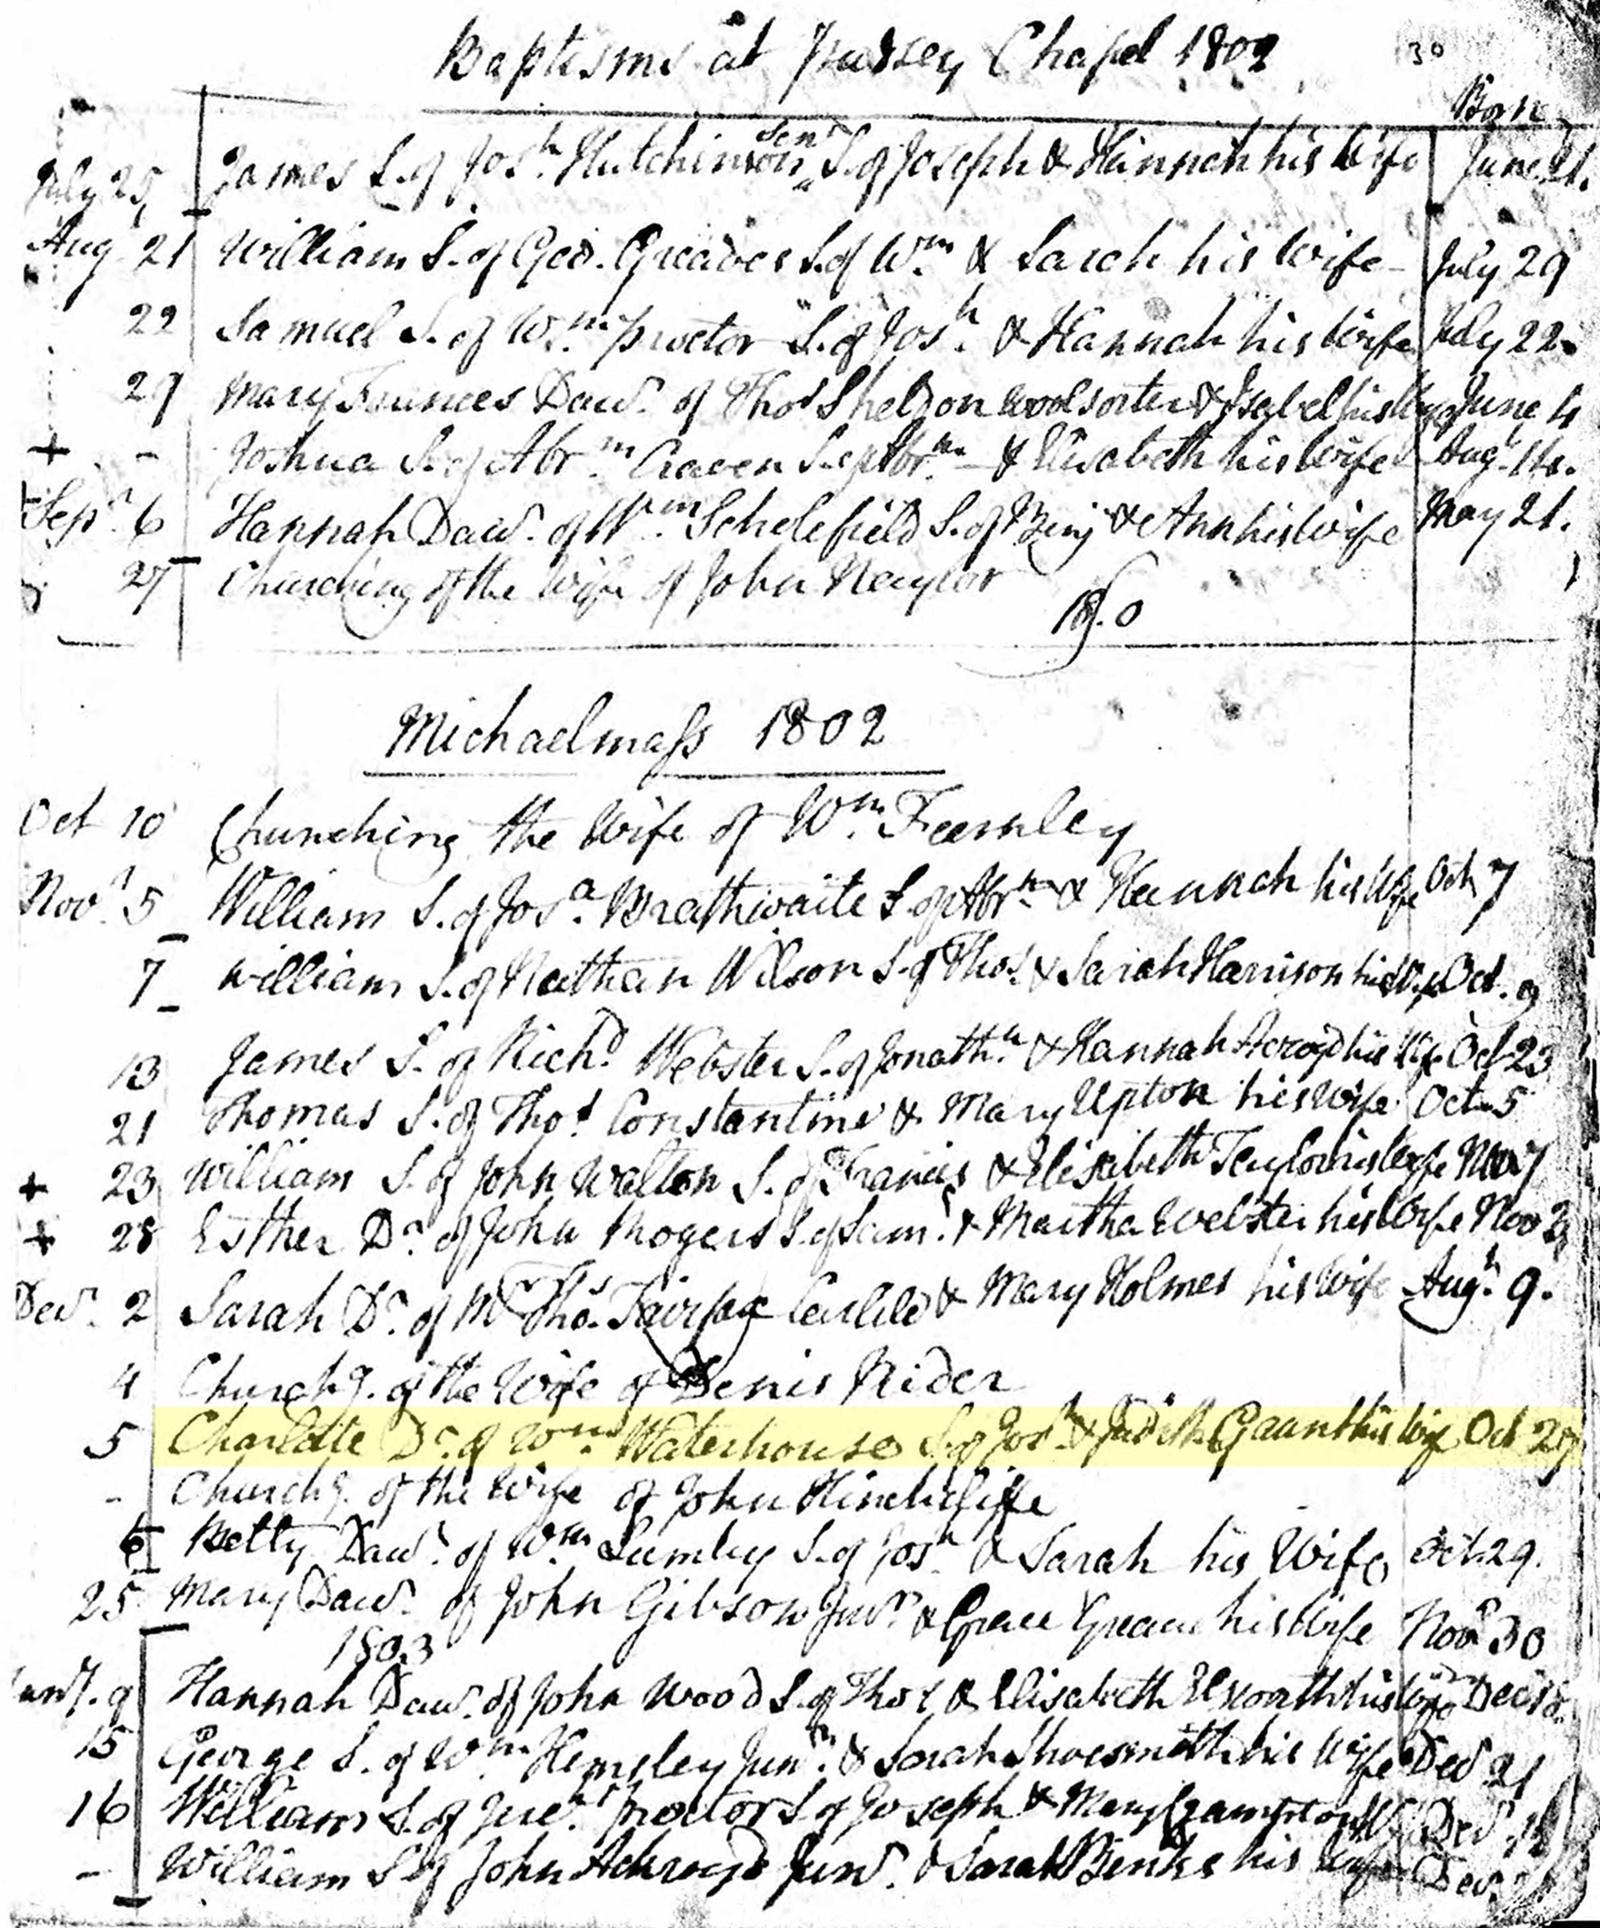 Baptisms at Pudsey Chapel 1802 30
Born
July 25 James S. of Josh. Hutchinson Senr S. of Joseph & Hannah his Wife June 21.
Aug 21 William S. of Geo. Greaves S. of Wm & Sarah his Wife - July 29
22 Samuel S. of Wm. Proctor S. of Josh. & Hannah his Wife July 22.
29 Mary Frances Dawr. of Thos Sheldon Woolsorter & Isabel his Wife June 4
+ - Joshua S. of Abrm Craven S. of Abrm - & Elisabeth his Wife Augt 14.
Sepr. 6 Hannah Dawr. of Wm. Scholefield S. of Binj & Ann his Wife May 21.
27 Churching of the Wife of John Naylor
Michaelmass 1802
Oct 10 Churching the Wife of Wm. Fearnley
Novr. 5 William S. of Josa. Brathwaite S. of Abrm. & Hannah his Wife Oct 7
7 William S. of Nathan Wilson S. of Thos. & Sarah Harrison his Wife Oct. 9
13 James S. of Richd. Webster S. of Jonathn. & Hannah Acroyd his Wife Oct 23
21 Thomas S. of Thos. Constantine & Mary Upton his Wife Oct. 5
+ 23 William S. of John Walton S. of Francis & Elisabeth Taylor his Wife Nov 7
+ 28 Esther Dr. of John Rogers S. of Saml. & Martha Webster his Wife Nov
Decr. 2 Sarah Dr. of Mr Thos. Fairfax Carlile & Mary Holmes his Wife Augt. 9.
4 Churchg. of the Wife of Denis Rider
5 Charlotte Dr. of Wm. Waterhouse S. of Josh & Judith Gaunt his Wife Oct 27
- Churchg. of the Wife of John Hinchcliffe
6 Betty Dawr. of Wm Lumby S. of Josh & Sarah his Wife Oct. 29.
25 Mary Dawr. of John Gibson Junr & Grace his Wife Novr 30
1803
9 Hannah Dawr. of John Wood S. of Thos & Elisabeth his Wife Dec
15 George S. of Wm. Hemsley Junr. & Sarah Shoesmith his Wife Decr 21
16 William S. of Proctor S. of Joseph & Mary Decr
- William S. of John Ackroyd Junr. & Sarah Binks his Wife Decr